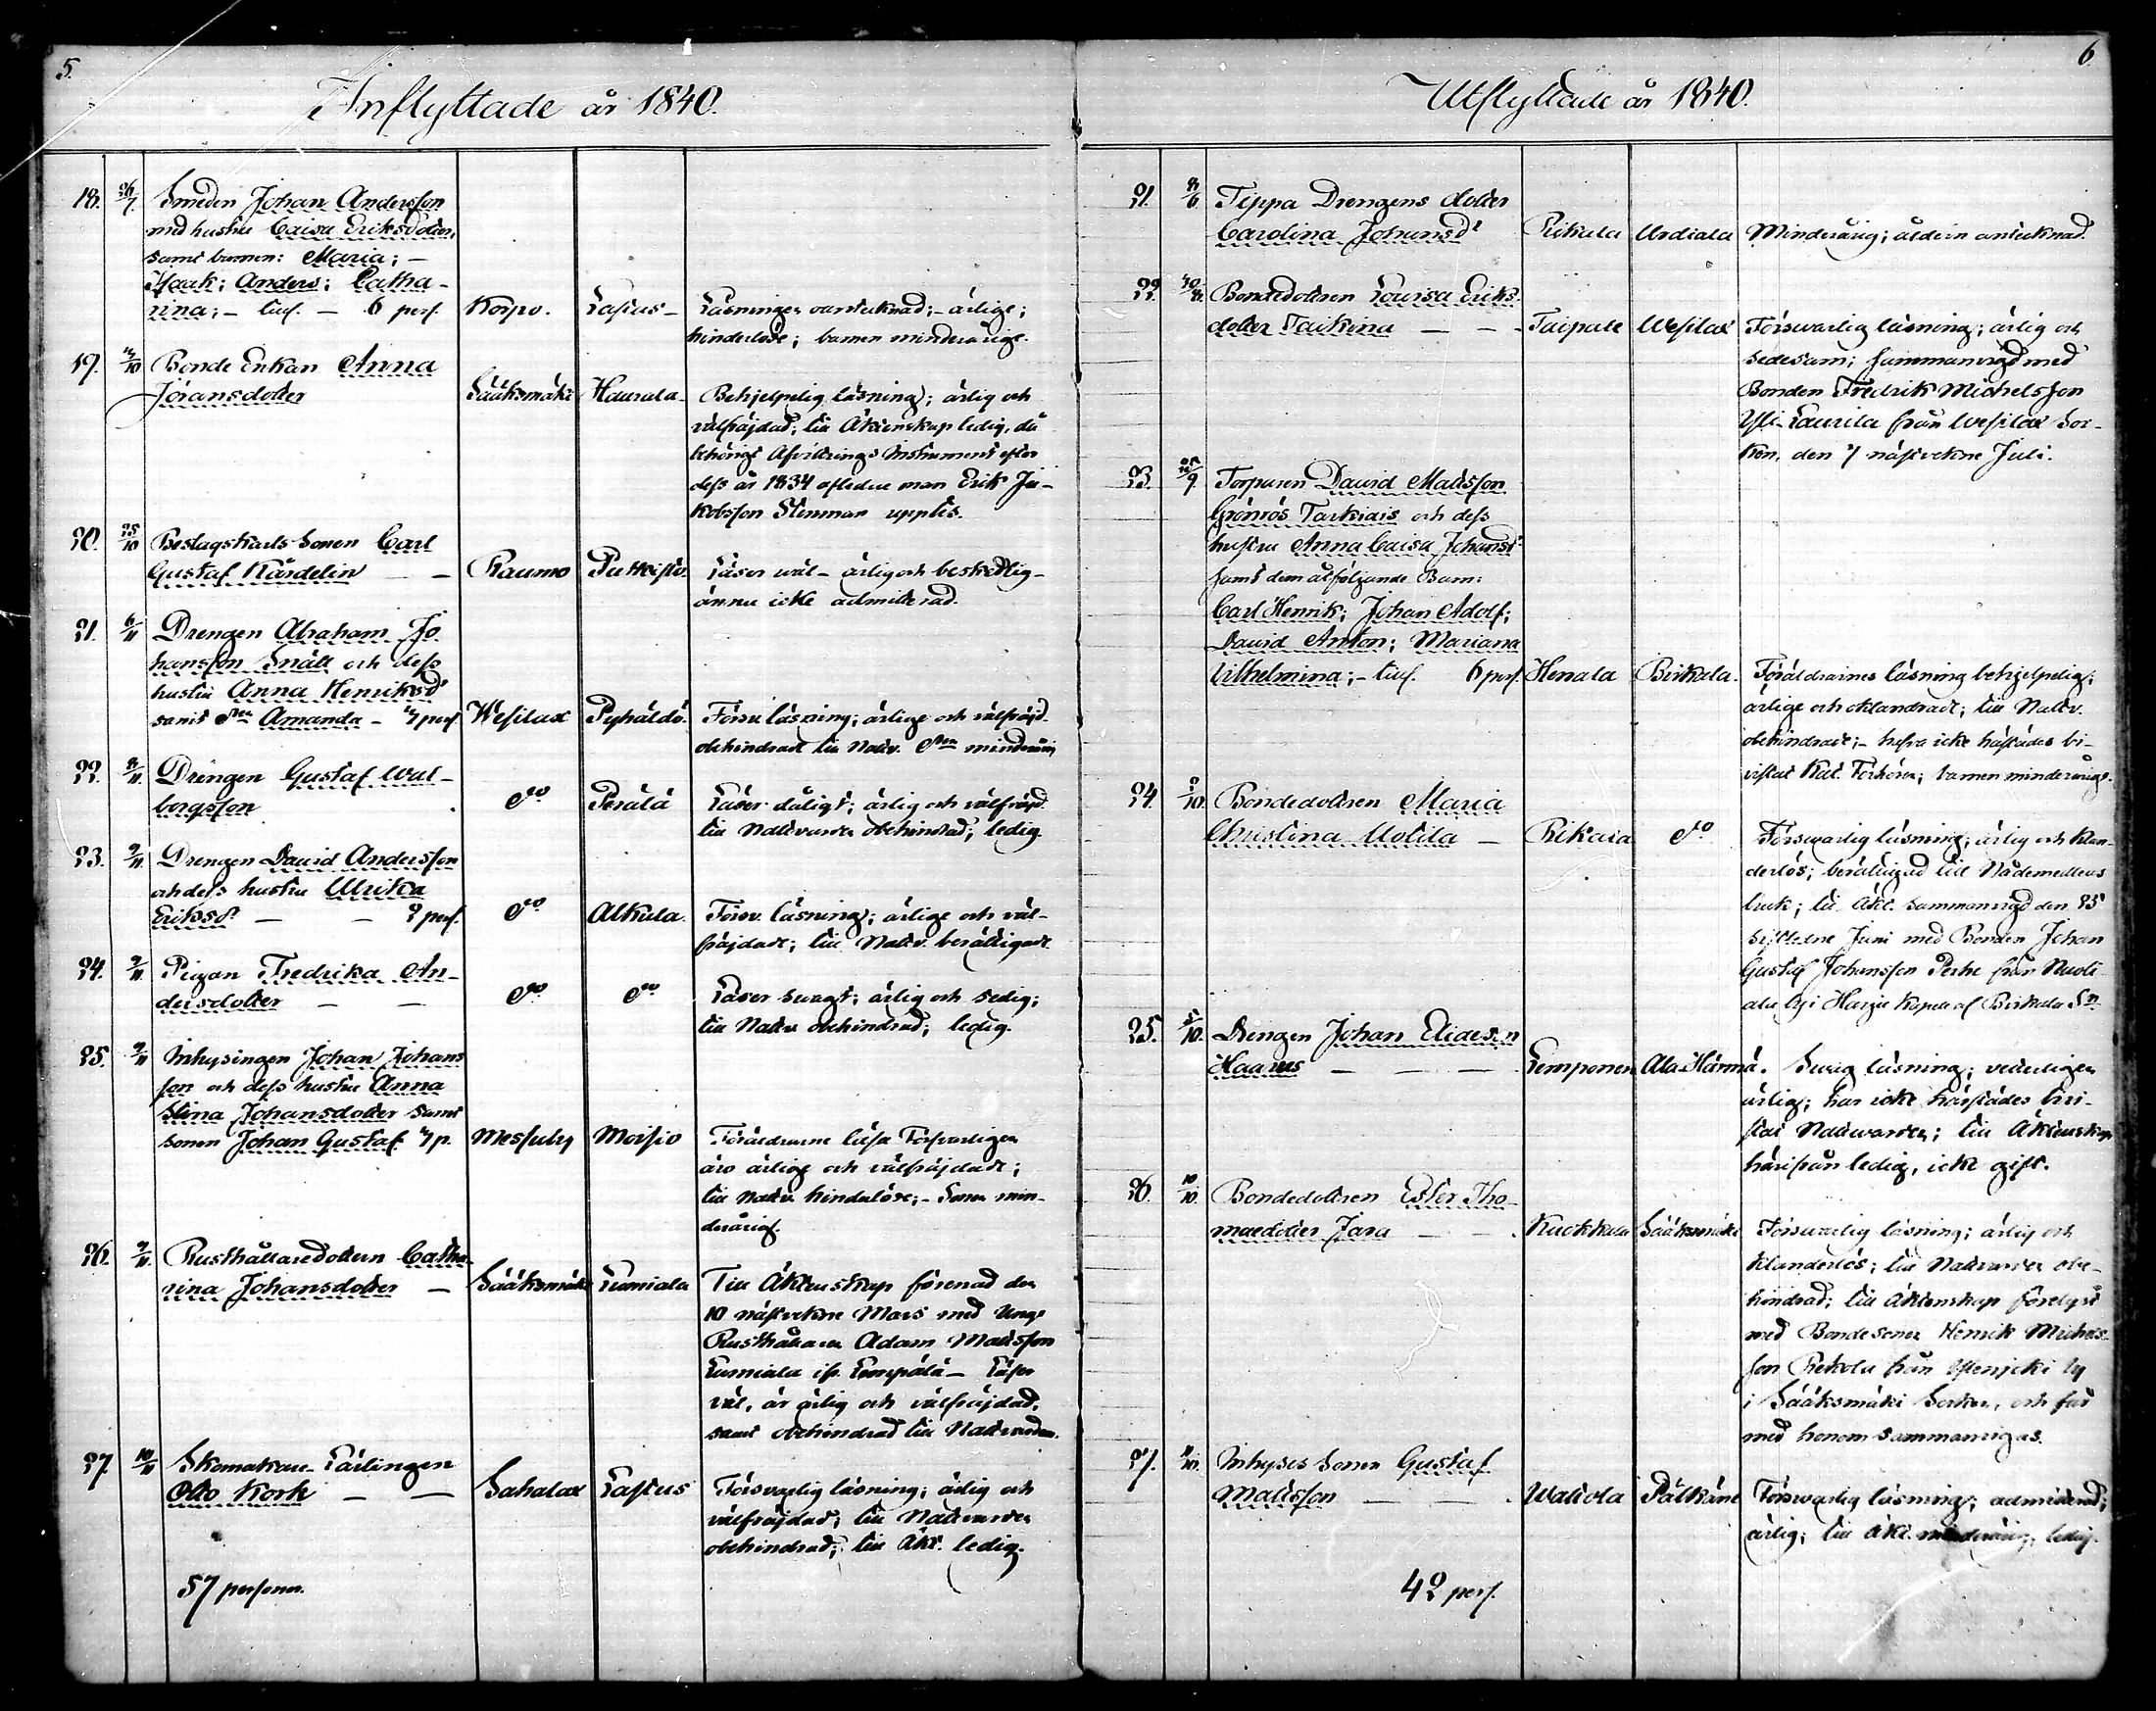 5.
Inflyttade år 1840.
18. 26/7. Smeden Johan Andersson
med hustru Caisa Eriksdotter,
samt barnen: Maria; –
Isaak; Anders; Catha-
rina; – tils. – 6 pers. Korpo. Lastus – Läsningen oantecknad; – ärlige;
hinderlöse; barnen minderårige.
19. 4/10 Bonde Enkan Anna
Jöransdotter Sääksmäki Haurala – Behjelpelig läsning; ärlig och
välfräjdad; till Äktenskap ledig, då
behörigt Afvittrings Instrument efter
dess år 1834 aflidne man Erik Ja-
kobsson Stenman upptes.
20. 25/10 Beslagskarls Sonen Carl
Gustaf Nårdelin – Raumo Puttoisto Läser wäl – ärlig och beskedlig –
ännu icke admitterad.
21. 6/11 Drengen Abraham Jo
hansson Snäll och dess
hustru Anna Henriksdr
samt dttn Amanda – 3 pers. Wesilax Pyhäldö. Försv. läsning; ärlige och välfräjd.
obehindrade till Nattv. dttn minderårig
22. 8/11. Drengen Gustaf Wal-
borgsson do Perälä Läser dåligt; ärlig och välfräjd.
till Nattvarden obehindrad; ledig.
23. 9/11. Drengen David Andersson
och dess hustru Ulrika
Eriksdr – – 2 pers. do Alkula. Försv. läsning; ärlige och väl-
fräjdade; till Nattv. berättigade.
24. 9/11 Pigan Fredrika An-
dersdotter – – do do Läser svagt; ärlig och sedig;
till Nattv. obehindrad; ledig.
25. 9/11 Inhysingen Johan Johans
son och dess hustru Anna
Stina Johansdotter samt
sonen Johan Gustaf. 3 p. Messuby Moisio Föräldrarne läsa Försvarligen
äro ärlige och välfräjdade;
till Nattv. hinderlöse; – Sonen min-
derårig.
26. 9/11. Rusthållaredottern Catha
rina Johansdotter – Sääksmäki Lumiala Till Äktenskap förenad den
10 nästvekne Mars med Unge
Rusthållaren Adam Mattsson
Lumiala ifr. Lempälä – Läser
väl, är ärlig och välfräjdad,
samt obehindrad till Nattvarden.
27. 10/11 Skomakare Lärlingen
Otto Kork – – Sahalax Lastus Försvarlig läsning; ärlig och
välfräjdad; till Nattvarden
obehindrad; till Äkt. ledig.
57 personer.
6.
Utflyttade år 1840.
21. 8/6 Tippa Drengens dotter
Carolina Johansdr Rikala Urdiala Minderårig; åldern antecknad.
22. Bondedottren Lovisa Eriks-
dotter Taikina – – Taipale Wesilax Försvarlig läsning; ärlig och
sedesam; sammanvigd med
Bonden Fredrik Michelsson
Yli-Laurila från Wesilax Soc-
ken, den 7 nästvekne Juli.
23. Torparen David Mattsson
Grönrös Tarkiais och dess
hustru Anna Caisa Johansdr
samt dem åtföljande Barn:
Carl Henrik; Johan Adolf;
David Anton; Mariana
Wilhelmina; – tils. 6 pers. Henala Birkala. Föräldrarnes läsning behjelpelig;
ärlige och oklandrade; till Nattv.
obehindrade; – hafva icke härstädes bi-
vistat Kat. Förhören; barnen minderårige.
24. 2/10. Bondedottren Maria
Christina Uotila – Rikala do Försvarlig läsning; ärlig och klan-
derlös; berättigad till Nådemedlens
bruk; till Äkt. sammanvigd den 25
sistledne Juni med Bonden Johan
Gustaf Johansson Perhe från Nuoli
ala by i Harju Kapell af Birkala Sn.
25. 5/10. Drengen Johan Elidesn
Haanes – – – Lemponen Ala-Härmä. Svag läsning; vederligen
ärlig; har icke härstädes bevi-
stat Nattvarden; till Äktenskap
härifrån ledig, icke gift.
26. 10/10. Bondedottren Ester Tho-
maedotter Jära – – Kuokkala Sääksmäki Försvarlig läsning; ärlig och
klanderlös; till Nattvarden obe-
hindrad; till Äktenskap förelyst
med Bondesonen Henrik Michels-
son Rekola från by
i Sääksmäki Socken, och får
med honom sammanvigas.
27. 11/10. Inhyses Sonen Gustaf
Mattsson – – Waliola Pälkäne Försvarlig läsning; admitterad;
ärlig; till Äkt. minderårig, ledig.
42 pers.